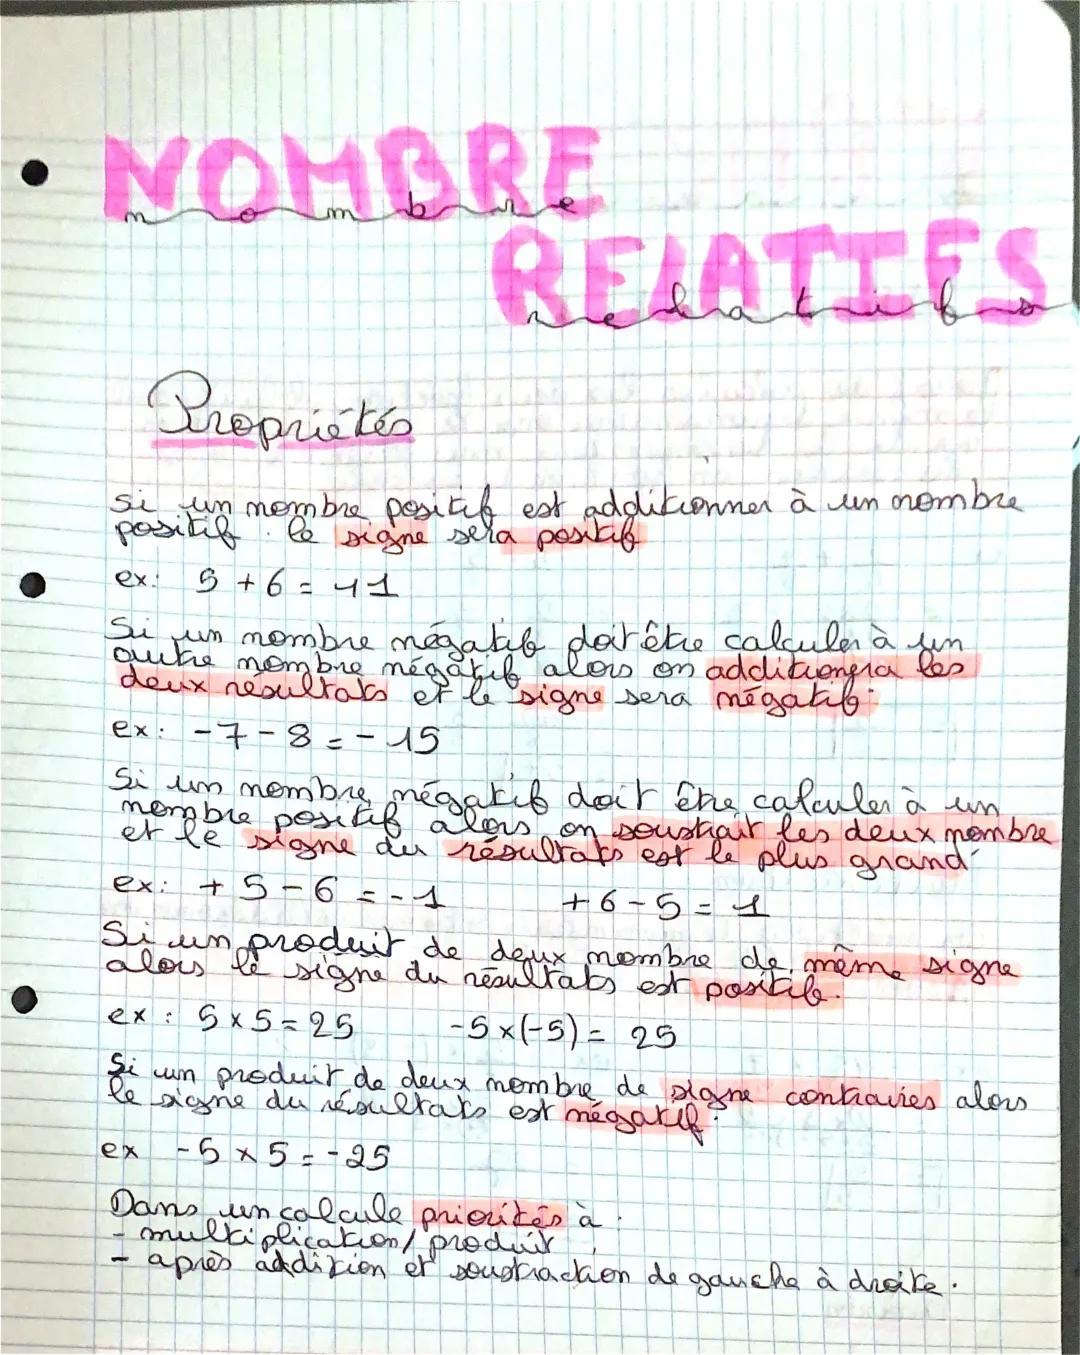 NOMBRE
nombre
RELATIFS
relatifs
Propriétés
si un nombre positif est additionner à un nombre
positif. le signe sera positif
ex: 5 + 6 = 11
Si un nombre négatif doit être calculer à un
autre nombre négatif alors on additionera les
deux résultats et le signe sera négatif.
ex: -7-8=-15
Si un nombre négatif doit être calculer à un
nombre positif alors on soustrait les deux nombre
et le signe du résultats est le plus grand
ex: +5-6=-1 +6-5=1
Si un produit de deux nombre de même signe
alors le signe du résultats est positif.
ex: 5×5=25 -5×(-5)= 25
Si un produit de deux nombre de signe contraires alors
le signe du résultats est négatif.
ex -5×5=-25
Dans un calcule priorités à :
- multiplication/produit,
- après addition et soustraction de gauche à droite.